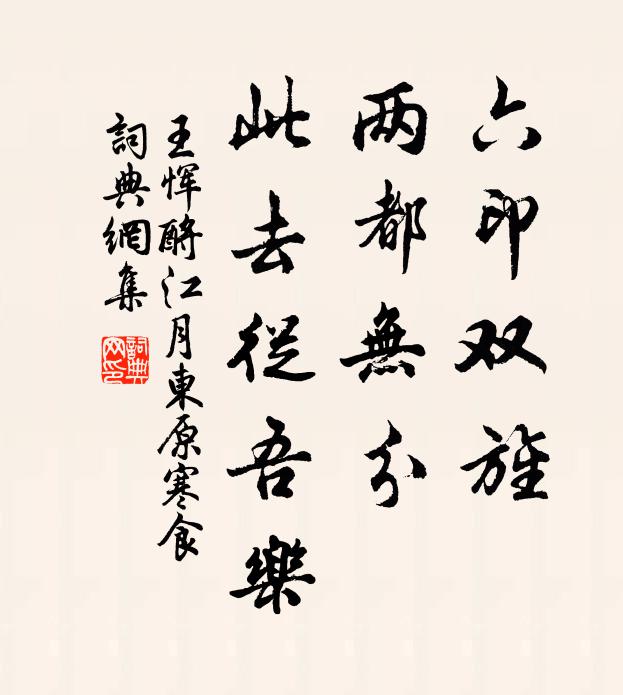 六印双旌
两都無分
此去從吾樂
王恽酹江月東原寒食
詞典網集
詞典網印